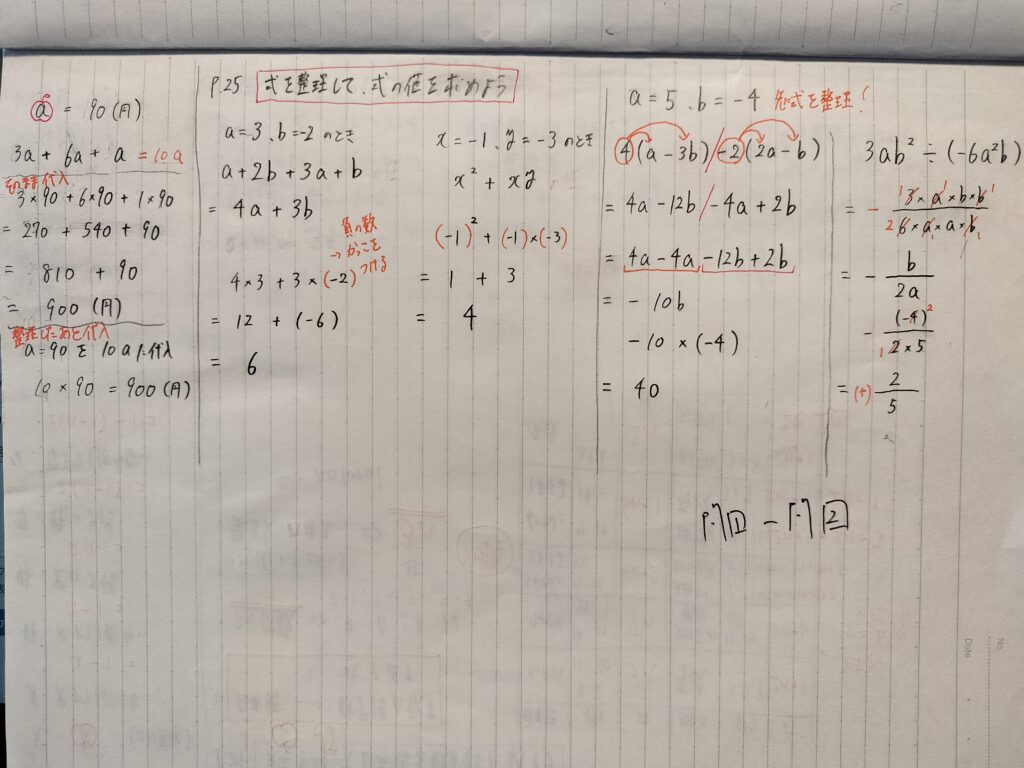 P.25 式を整理して、式の値を求めよう
a = 90 (円)
3a + 6a + a = 10a
そのまま代入
3×90 + 6×90 + 1×90
= 270 + 540 + 90
= 810 + 90
= 900 (円)
整理したあと代入
a=90 を 10a に代入
10×90 = 900 (円)
a=3、b=-2 のとき
a+2b+3a+b
= 4a+3b
負の数
→かっこを
つける
4×3 + 3×(-2)
= 12 + (-6)
= 6
x=-1、y=-3 のとき
x² + xy
(-1)² + (-1)×(-3)
= 1 + 3
= 4
a=5、b=-4 先に式を整理!
4(a-3b)/-2(2a-b)
= 4a-12b/-4a+2b
= 4a-4a-12b+2b
= -10b
-10×(-4)
= 40
3ab² ÷ (-6a²b)
= - 1 3×a×b×b 1
2 6×a×a×b 1
= - b
2a
- (-4)²
1 2×5
= (+) 2
5
問1 - 問2
No.
Date